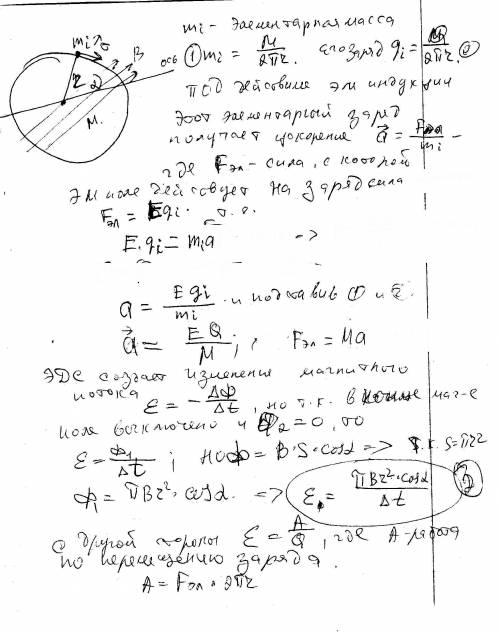 mi - элементарная масса
① mi = M/2πr. его заряд qi = Q/2πr. ②
mi υ B ось
r α
M.
под действием эм индукции
этот элементарный заряд
получает ускорение a⃗ = Fэл/mi -
где Fэл - сила, с которой
эм поле действует на заряд сила
Fэл = Eqi. т.о.
E·qi = mia =>
a = Eqi/mi и подставив ① и ②
a⃗ = EQ/M ; Fэл = Ma
ЭДС создает изменение магнитного
потока ℰ = - ΔФ/Δt, но т.к. в конце маг-е
поле выключено и Ф2 = 0, то
ℰ = Ф1/Δt ; но Ф = B·S·cosα => т.к. S = πr2
Ф1 = πBr2·cosα. => ℰ = πBr2·cosα/Δt ③
с другой стороны ℰ = A/Q, где A - работа
по перемещению заряда.
A = Fэл · 2πr